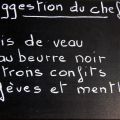 ggestion du chef
is de veau
au beurre noir
trons confits
fèves et menth